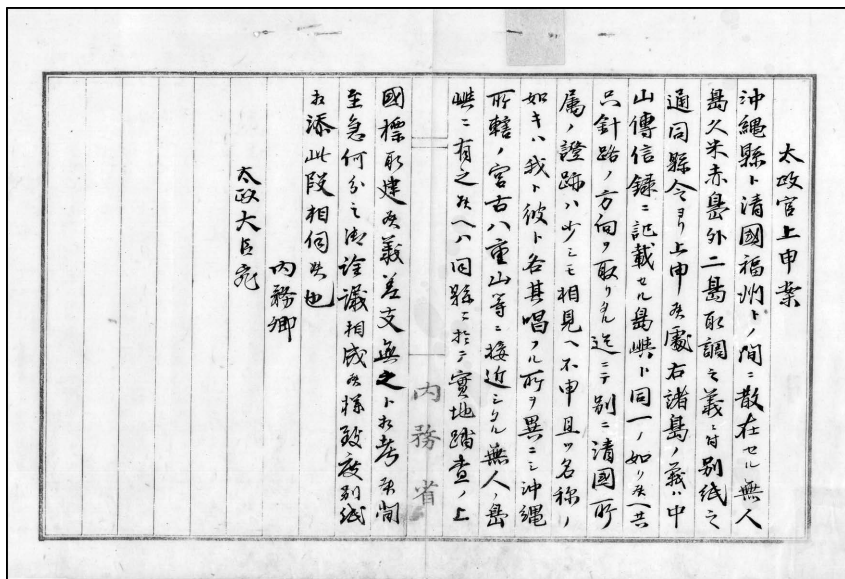 太政官上申案
沖縄縣ト清國福州トノ間ニ散在セル無人
島久米赤島外二島取調之義ニ付別紙之
通同縣令ヨリ上申候處右諸島ノ義ハ中
山傳信録ニ記載セル島嶼ト同一ノ如ク候ヘ共
只針路ノ方向ヲ取リタル迄ニテ別ニ清國所
属ノ證跡ハ少シモ相見ヘ不申且ツ名称ノ
如キハ我ト彼ト各其唱フル所ヲ異ニシ沖縄
所轄ノ宮古八重山等ニ接近シタル無人ノ島
嶼ニ有之候ヘハ同縣ニ於テ實地踏査ノ上
國標取建候義差支無之ト相考候間
至急何分之御詮議相成候様致度別紙
相添此段相伺候也
内務卿
太政大臣宛
内務省